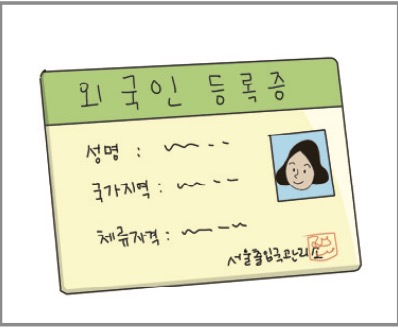 외국인 등록증
성명 :
국가지역 :
체류자격 :
서울출입국관리소